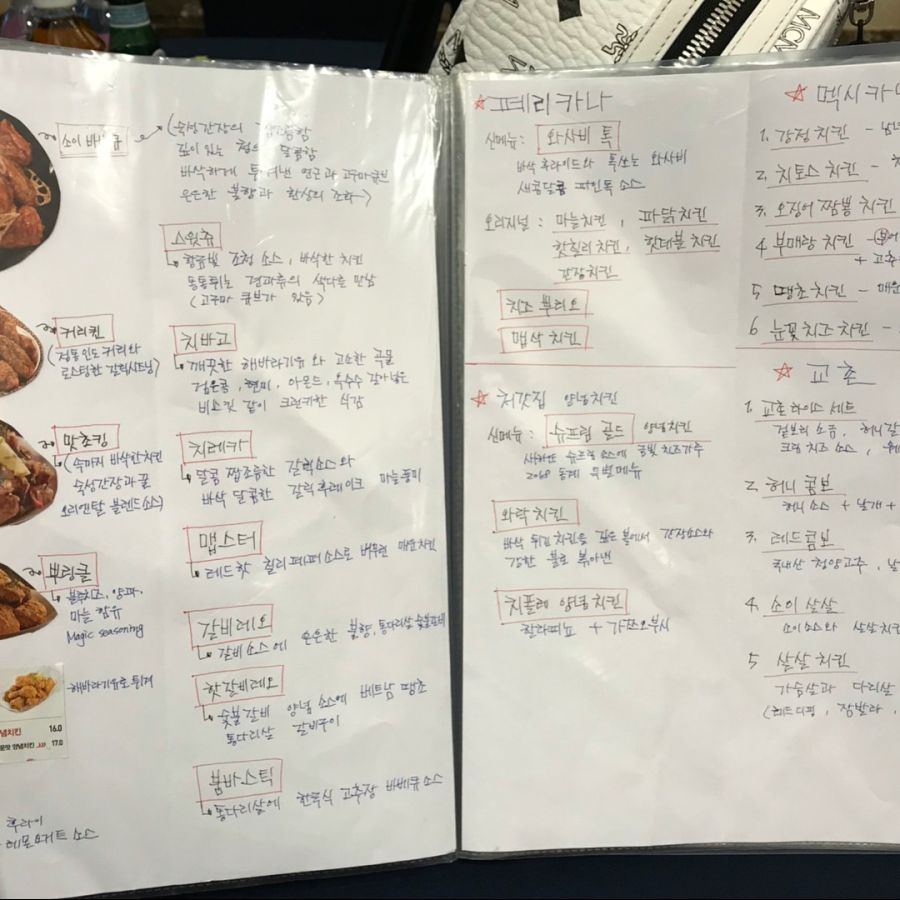 소이 바베큐
(숙성간장의
깊이 있는 달콤함
바삭하게 튀겨낸 연근과 고구마큐브
은은한 불향과 환상의 조화→)
스윗츄
황금빛 조청 소스, 바삭한 치킨
통통튀는 견과류의 색다른 만남
(고구마 큐브가 있음)
커리퀸
(정통인도커리와
로스팅한 갈릭시트닝)
치바고
깨끗한 해바라기유와 고소한 곡물
검은콩, 현미, 아몬드, 옥수수 갈아넣은
비스킷 같이 크런키한 식감
맛쵸킹
(속까지 바삭한치킨
숙성간장과 꿀
오리엔탈 블렌드소스)
치레카
달콤 짭조름한 갈릭소스와
바삭 달콤한 갈릭후레이크 마늘풍미
맵스터
레드핫 칠리페퍼소스로 버무린 매운치킨
뿌링클
블루치즈, 양파,
마늘 함유
Magic seasoning
갈비레오
갈비소스에 은은한 불향, 통다리살
핫갈비레오
숯불갈비 양념 소스에 베트남 땡초
통다리살 갈비구이
해바라기유로 튀겨
념치킨 16.0
운맛 양념치킨 17.0
붐바스틱
통다리살에 한국식 고추장 바베큐소스
후라이
레몬요거트 소스
☆ 페리카나
신메뉴: 와사비 톡
바삭 후라이드와 톡쏘는 와사비
새콤달콤 파인톡 소스
오리지널: 마늘치킨, 파닭치킨
핫칠리치킨, 핫데블 치킨
간장치킨
치즈 뿌리오
맵삭 치킨
☆ 처갓집 양념치킨
신메뉴: 슈프림 골드 양념치킨
슈프림 소스에 금빛 치즈가루
2018 동계 특별메뉴
와락 치킨
바삭 튀긴 치킨을 깊은 볼에서 간장소스와
강한 불로 볶아낸
치폴레 양념치킨
할라피뇨 + 가쯔오부시
☆ 멕시카나
1. 강정치킨 -
2. 치토스 치킨 -
3. 오징어 짬뽕 치킨
4 부매랑 치킨 -
+ 고추
5 땡초치킨 - 매운
6 눈꽃치즈 치킨 -
☆ 교촌
1. 교촌라이스 세트
겉보리 소금, 허니갈
크림 치즈 소스,
2. 허니 콤보
허니소스 + 날개 +
3. 레드콤보
국내산 청양고추,
4. 소이 살살
소이소스와 살살치킨
5 살살 치킨
가슴살과 다리살
(레드디핑, 잠발라,